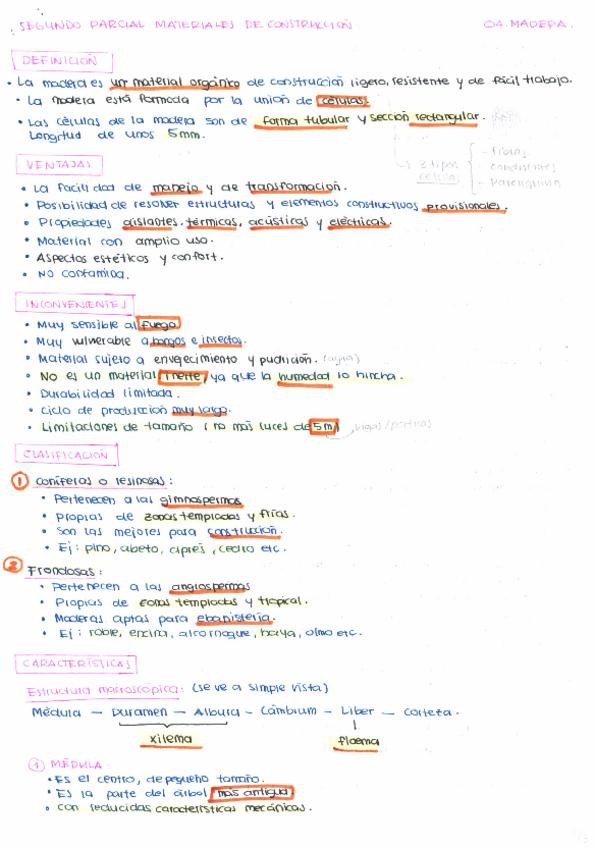 SEGUNDO PARCIAL MATERIALES DE CONSTRUCCIÓN 04. MADERA.
DEFINICIÓN
• La madera es un material orgánico de construcción ligero, resistente y de fácil trabajo.
• La madera está formada por la unión de células.
• Las células de la madera son de forma tubular y sección rectangular.
Longitud de unos 5mm.
3 tipos células
- Fibras
- conductores
- Parénquima
VENTAJAS
• La facilidad de manejo y de transformación.
• Posibilidad de resolver estructuras y elementos constructivos provisionales.
• Propiedades aislantes, térmicas, acústicas y eléctricas.
• Material con amplio uso.
• Aspectos estéticos y confort.
• No contamina.
INCONVENIENTES
• Muy sensible al fuego.
• Muy vulnerable a hongos e insectos.
• Material sujeto a envejecimiento y pudrición. (agua)
• No es un material inerte, ya que la humedad lo hincha.
• Durabilidad limitada.
• Ciclo de producción muy largo.
• Limitaciones de tamaño (no más luces de 5m) vigas/
CLASIFICACIÓN
1 coníferas o resinosas:
• Pertenecen a las gimnospermas
• Propias de zonas templadas y frías.
• Son las mejores para construcción.
• Ej: pino, abeto, ciprés, cedro etc.
2 Frondosas:
• Pertenecen a las angiospermas
• Propias de zonas templadas y tropical.
• Maderas aptas para ebanistería.
• Ej: roble, encina, alcornoque, haya, olmo etc.
CARACTERÍSTICAS
Estructura macroscópica: (se ve a simple vista)
Médula — Duramen — Albura — Cámbium — Liber — Corteza.
xilema floema
1 MÉDULA
• Es el centro, de pequeño tamaño.
• Es la parte del árbol más antigua.
• con reducidas características mecánicas.